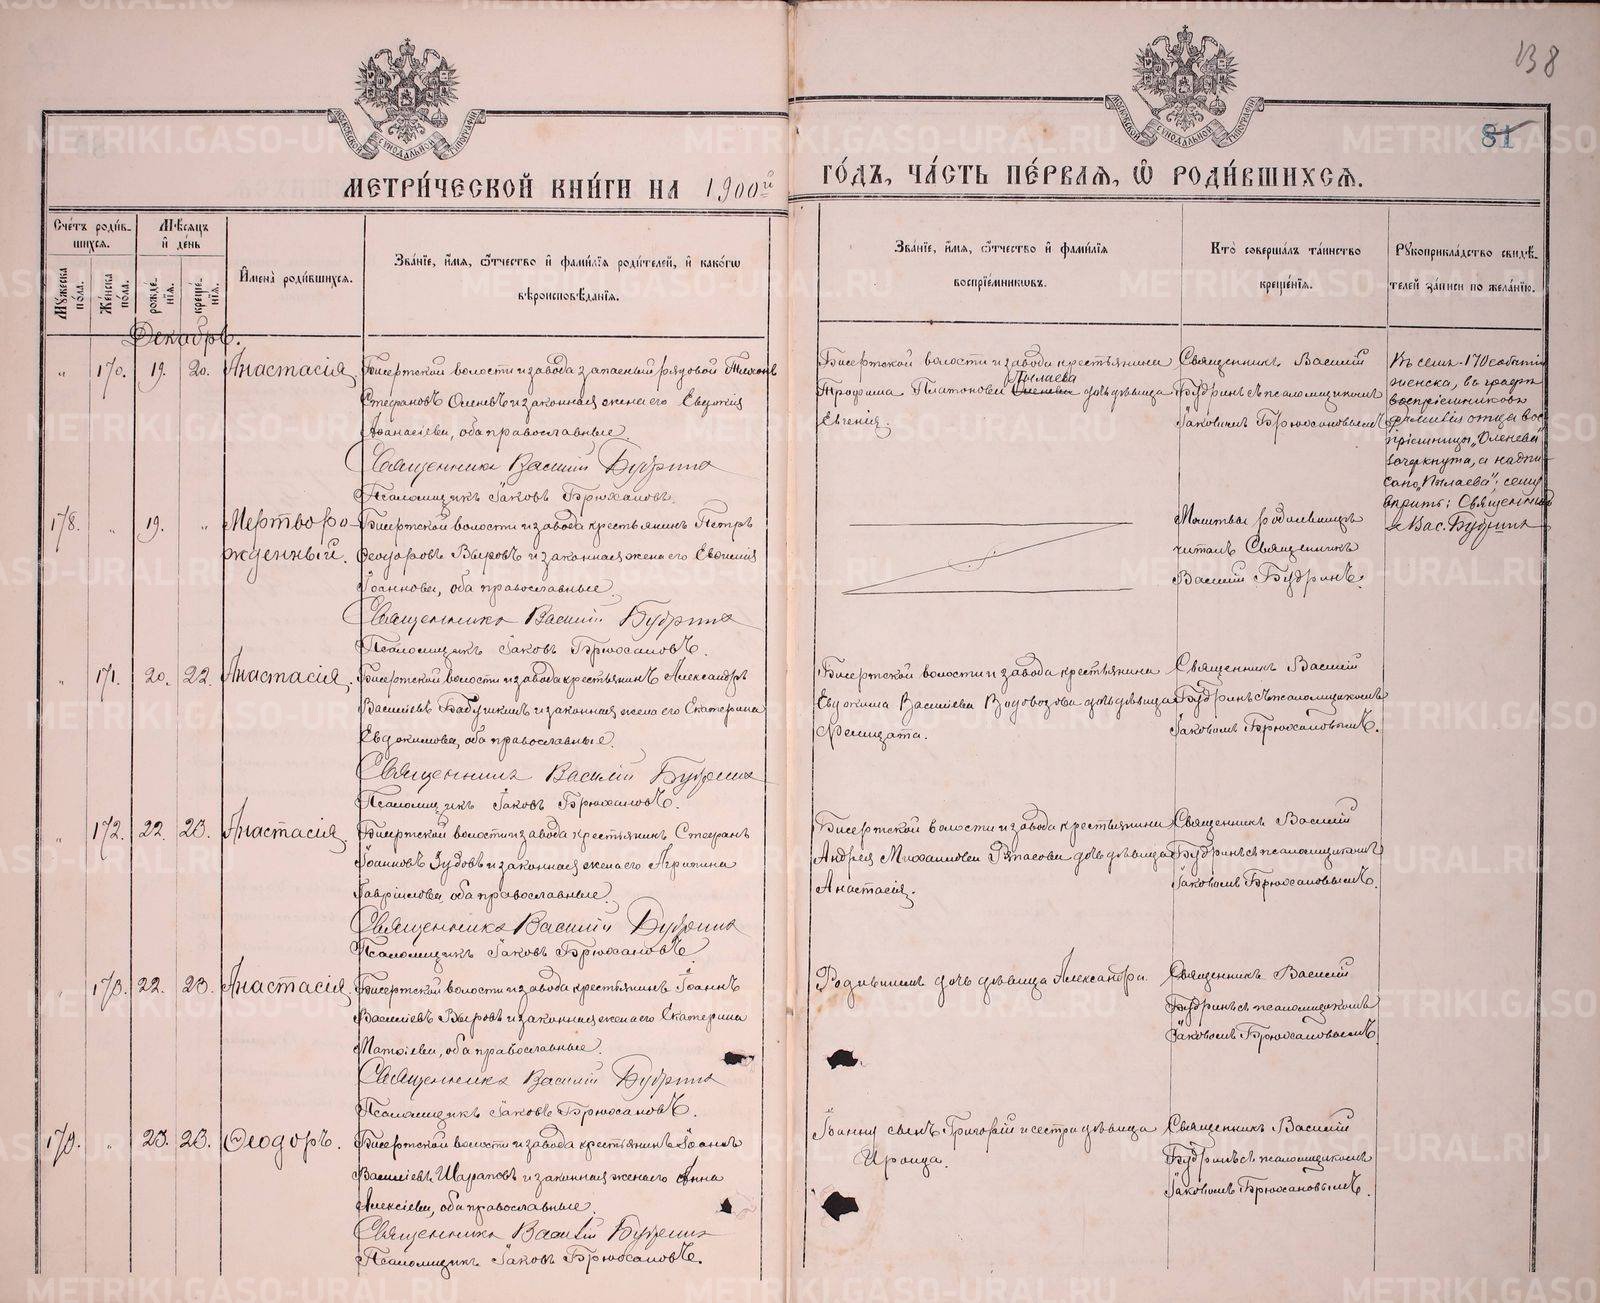 138
81
МЕТРИ́ЧЕСКОЙ КНИ́ГИ НА 1900й ГО́ДЪ, ЧА́СТЬ ПЕ́РВАЯ, Ѡ РОДИ́ВШИХСЯ.
Сче́тъ роди́в-
шихся.
Мѣ́сяцъ
и де́нь
Мꙋ́жеска по́ла.
Же́нска по́ла.
рожде́-
нїя.
креще́-
нїя.
Имена̀ роди́вшихся.
Зва́нїе, и́мя, ѻ́тчество и фами́лїя роди́телей, и како́гѡ
вѣроисповѣ́данїя.
Зва́нїе, и́мя, ѻ́тчество и фами́лїя
воспрїе́мникѡвъ.
Кто̀ соверша́лъ та́инство
креще́нїя.
Рꙋкоприкла́дство свидѣ́-
телей за́писи по жела́нїю.
Декабрь.
" 170. 19. 20. Анастасія
Бисертской волости и завода запасный рядовой Тихонъ
Стефановъ Оленевъ и законная жена его Евдокія
Аѳанасіева, оба православные.
Священникъ Василій Будринъ
Псаломщикъ Іаковъ Брюхановъ.
Бисертской волости и завода крестьянина
Трофима Платонова Пылаева дочь дѣвица
Евгенія.
Священникъ Василій
Будринъ съ псаломщикомъ
Іаковомъ Брюхановымъ
Въ семъ 170 событіи
женска, въ графѣ
воспріемниковъ
фамилія отца вос-
пріемницы "Оленева"
зачеркнута, а надпи-
сано "Пылаева"; сему
вѣрить: Священникъ
Вас. Будринъ
178. " 19. " Мертворо-
жденный.
Бисертской волости и завода крестьянинъ Петръ
Ѳеодоровъ Выровъ и законная жена его Евѳимія
Іоаннова, оба православные.
Священникъ Василій Будринъ
Псаломщикъ Іаковъ Брюхановъ.
Молитвы родильницѣ
читалъ Священникъ
Василій Будринъ.
" 171. 20. 22. Анастасія.
Бисертской волости и завода крестьянинъ Александръ
Васильевъ Бабушкинъ и законная жена его Екатерина
Евдокимова, оба православные.
Священникъ Василій Будринъ
Псаломщикъ Іаковъ Брюхановъ.
Бисертской волости и завода крестьянина
Евдокима Васильева Водовозова дочь дѣвица
Священникъ Василій
Будринъ съ псаломщикомъ
Іаковомъ Брюхановымъ.
" 172. 22. 23. Анастасія
Бисертской волости и завода крестьянинъ Стефанъ
Іоанновъ Зудовъ и законная жена его Агрипина
Гавріилова, оба православные.
Священникъ Василій Будринъ
Псаломщикъ Іаковъ Брюхановъ
Бисертской волости и завода крестьянина
Андрея Михаилова дочь дѣвица
Анастасія.
Священникъ Василій
Будринъ съ псаломщикомъ
Іаковомъ Брюхановымъ.
" 173. 22. 23. Анастасія
Бисертской волости и завода крестьянинъ Іоаннъ
Васильевъ Выровъ и законная жена его Екатерина
Матѳіева, оба православные.
Священникъ Василій Будринъ
Псаломщикъ Іаковъ Брюхановъ.
дочь дѣвица Александра.
Священникъ Василій
Будринъ съ псаломщикомъ
Іаковомъ Брюхановымъ.
179. " 23. 23. Ѳеодоръ.
Бисертской волости и завода крестьянинъ Іоаннъ
Васильевъ Шараповъ и законная жена его Анна
Алексіева, оба православные.
Священникъ Василій Будринъ
Псаломщикъ Іаковъ Брюхановъ.
сынъ Григорій и сестра дѣвица
Ираида.
Священникъ Василій
Будринъ съ псаломщикомъ
Іаковомъ Брюхановымъ.
METRIKI.GASO-URAL.RU